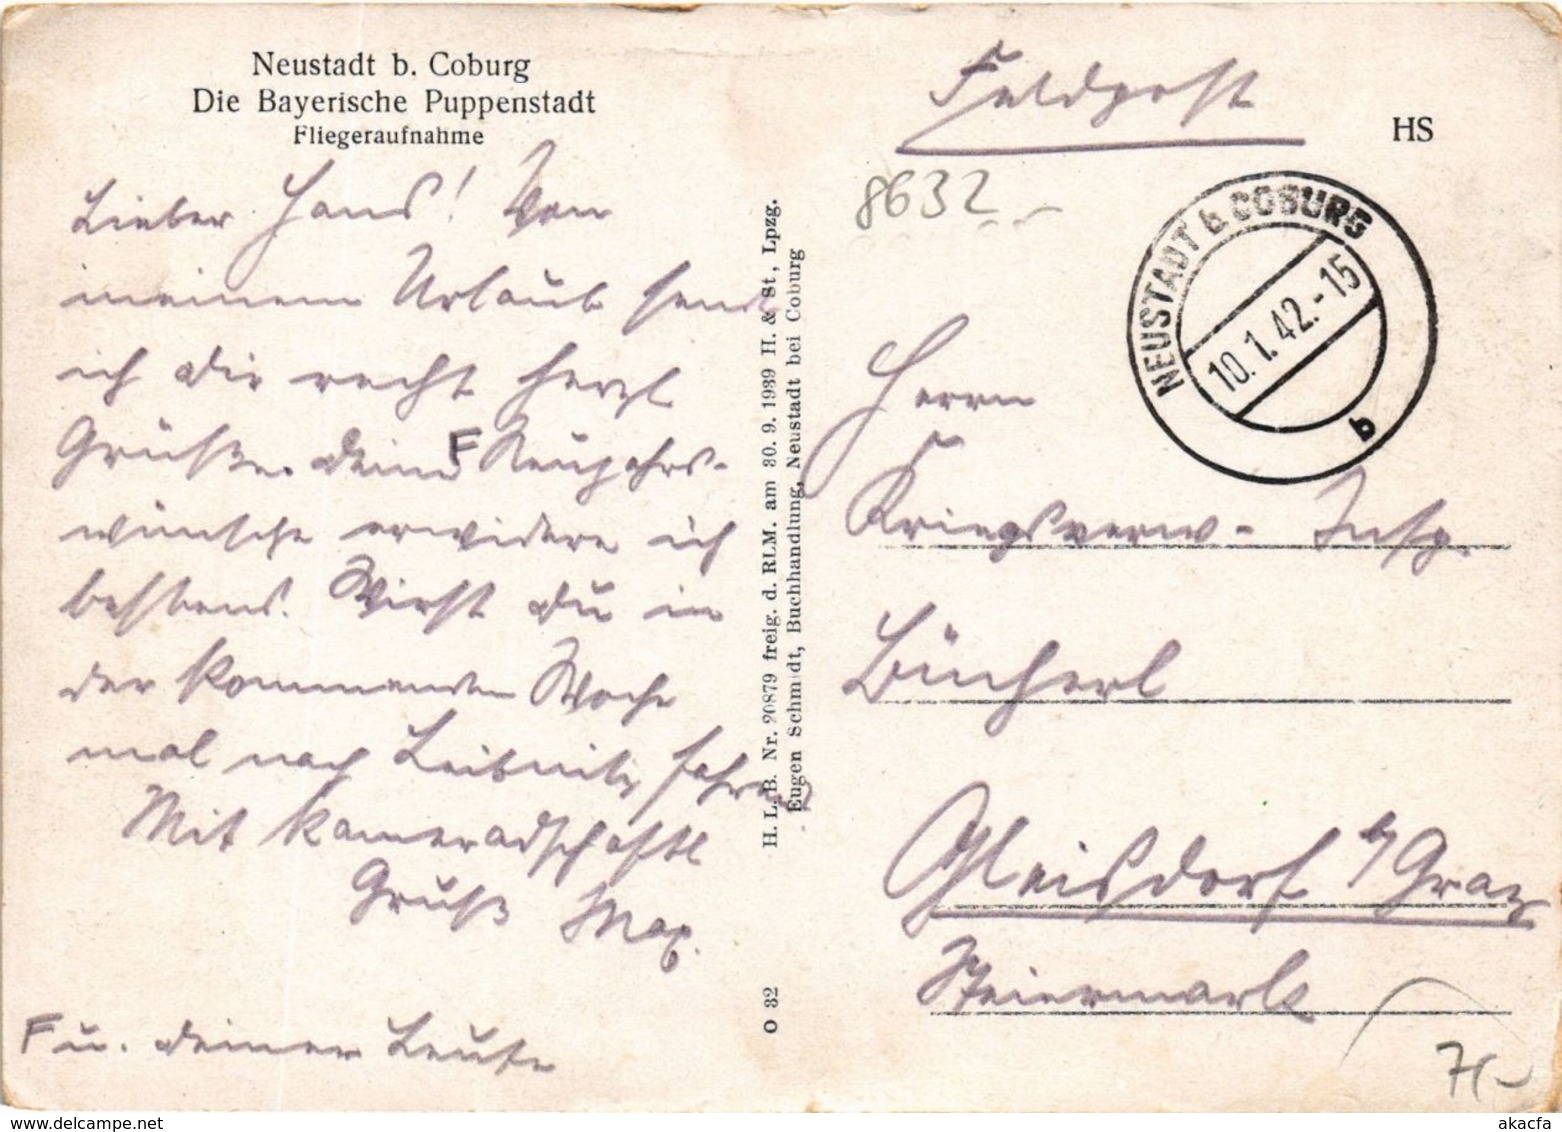 Neustadt b. Coburg
Die Bayerische Puppenstadt
Fliegeraufnahme
Lieber Hans! Von
meinem Urlaub sende
ich dir recht herzl.
Grüße. Deine F Neujahrs-
wünsche erwidere ich
bestens. Wirst du in
der kommenden Woche
mal nach Leibnitz fahren
Mit kameradschaftl
Gruß Max.
F u. deiner Leute
H. L. B. Nr. 20879 freig. d. RLM. am 30. 9. 1939 H. & St., Lpzg.
Eugen Schmidt, Buchhandlung, Neustadt bei Coburg
O 32
Feldpost
HS
8632
NEUSTADT b COBURG
10.1.42.-15
b
Herrn
Kriegsverw- Insp.
Bücherl
Gleisdorf b/Graz
Steiermark
7(-
© www.delcampe.net
akacfa